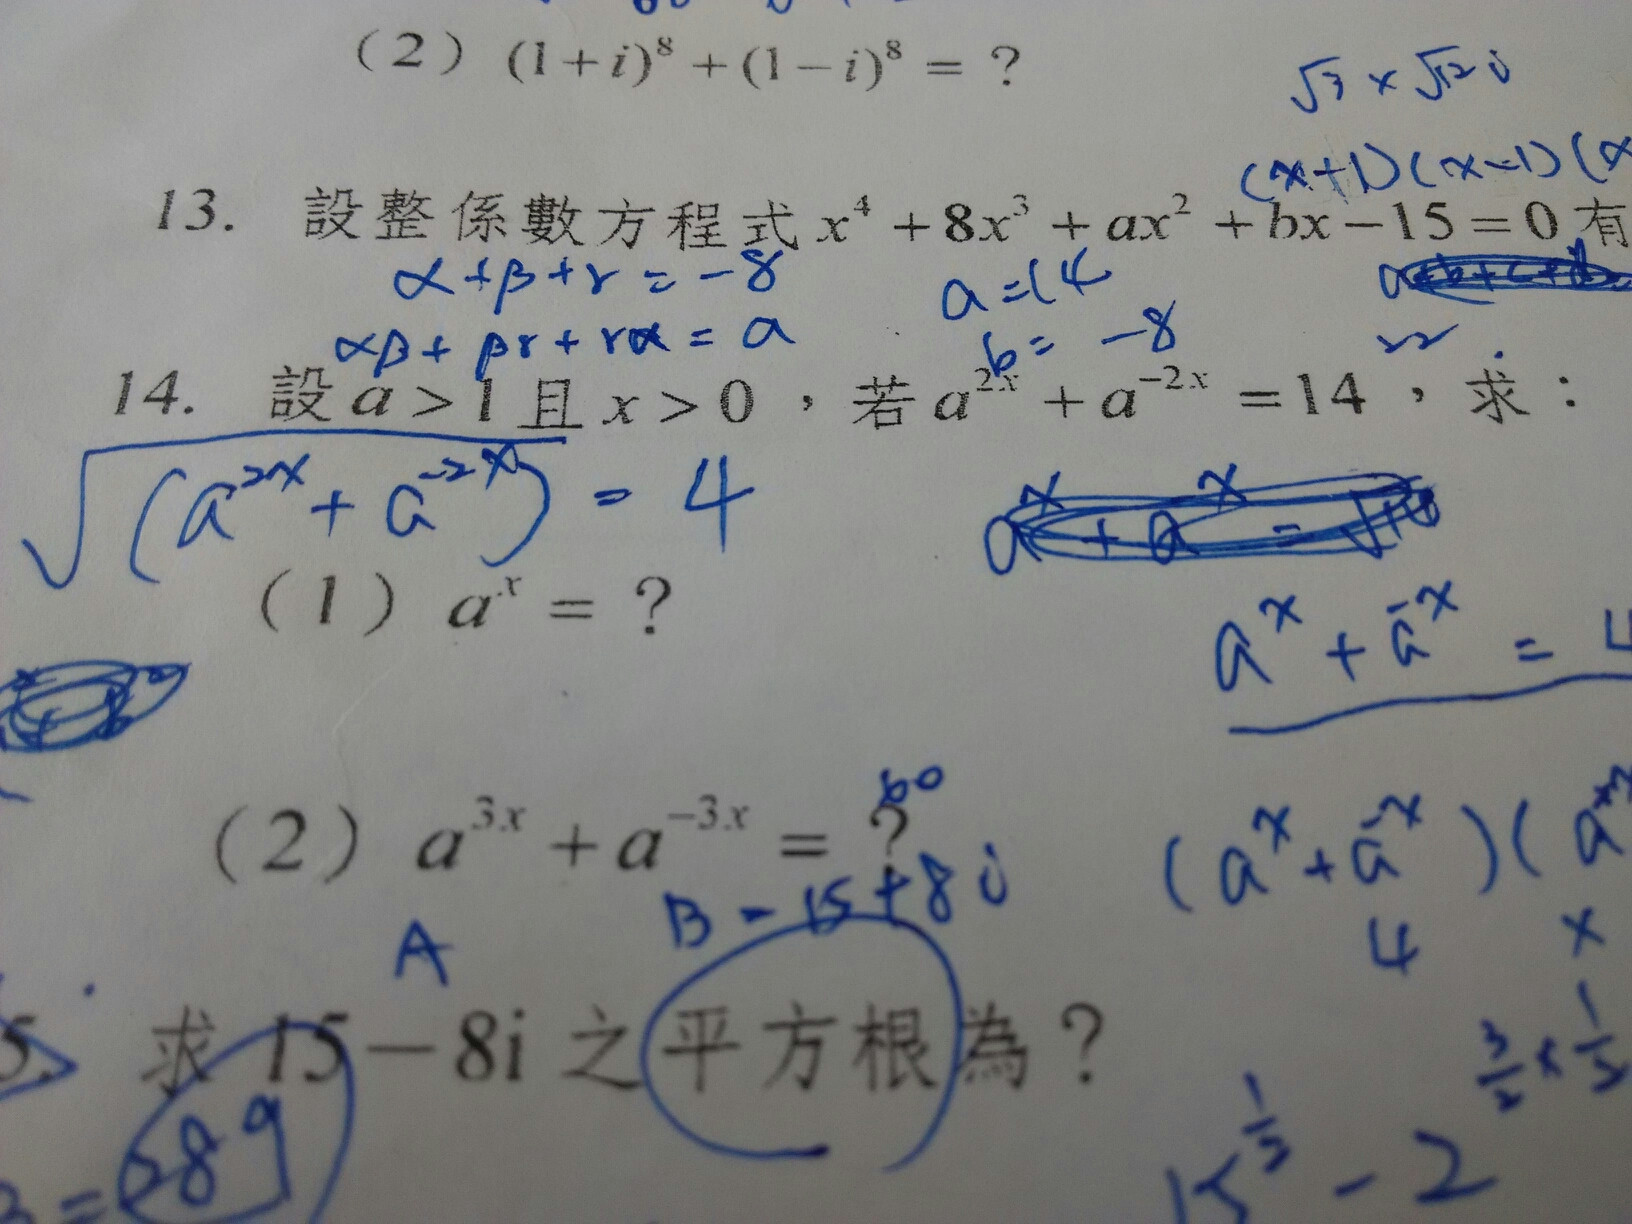 (2) (1+i)⁸+(1-i)⁸ = ?
√3 × √12 i
(x+1)(x-1)(x
13. 設整係數方程式 x⁴+8x³+ax²+bx-15=0 有
α+β+r = -8
a=14
αβ+βr+rα = a
b= -8
14. 設 a>1 且 x>0，若 a²ˣ+a⁻²ˣ=14，求：
√(a²ˣ+a⁻²ˣ) = 4
(1) aˣ = ?
aˣ+a⁻ˣ = 4
60
(2) a³ˣ+a⁻³ˣ = ?
(aˣ+a⁻ˣ)(a
4 ×
A
B = 15+8i
5. 求 15-8i 之平方根為？
3/2 × 1/2
289